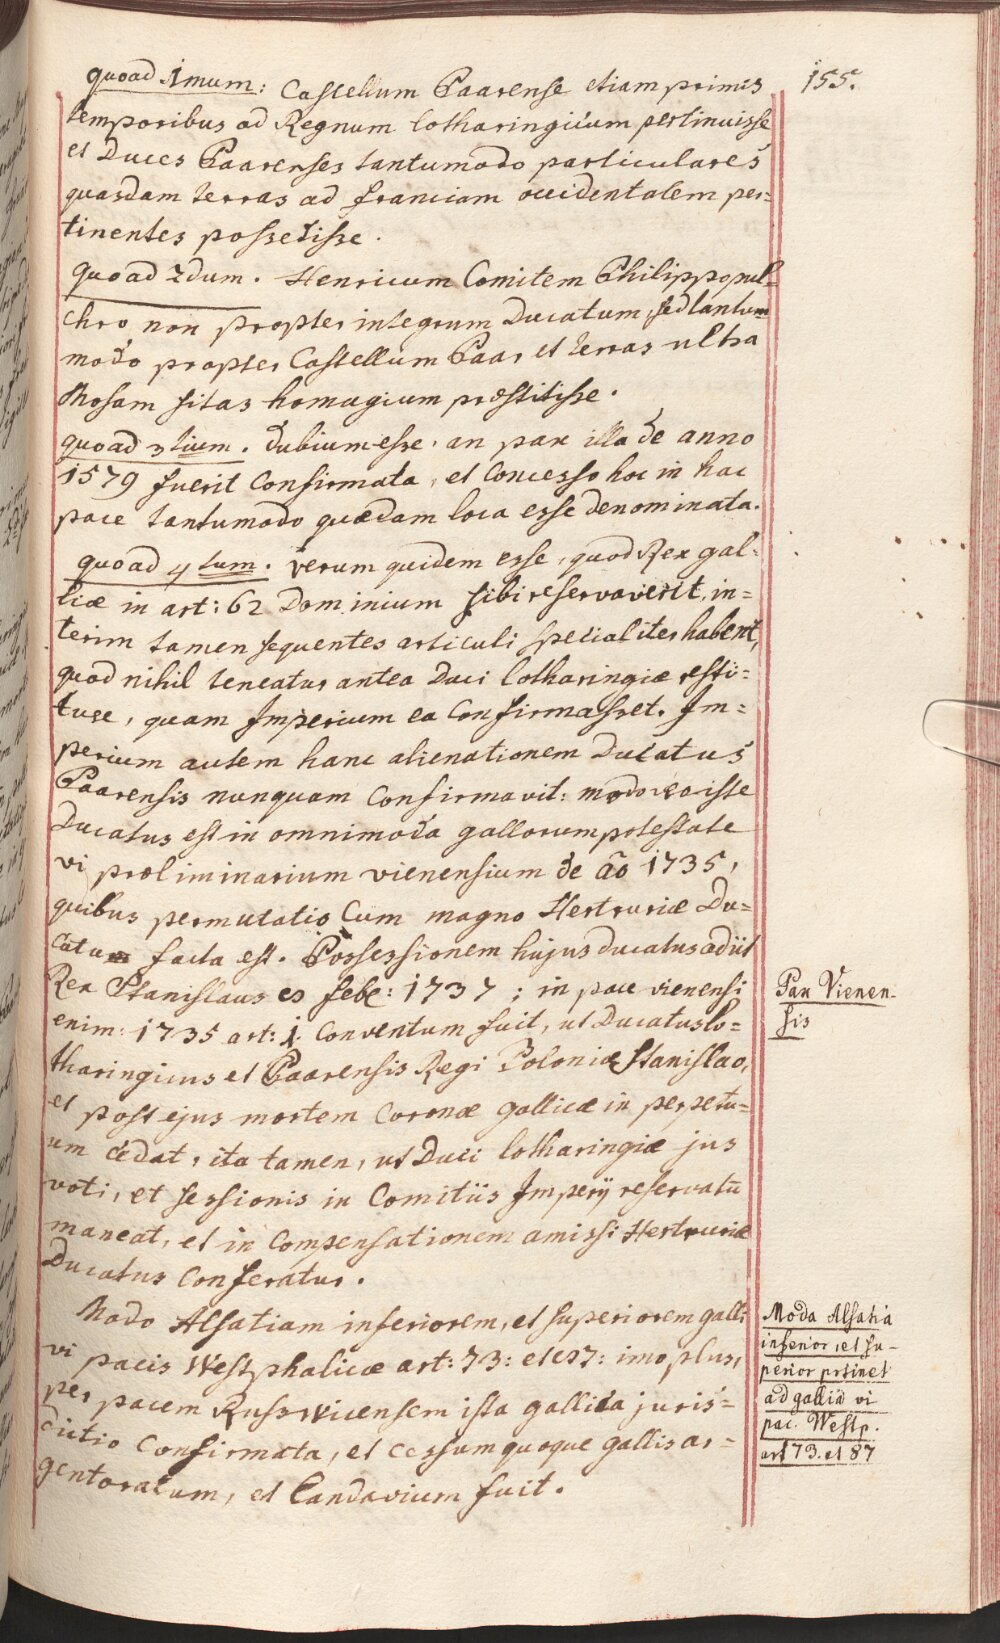 155.
quoad 1mum: Castellum Baarense etiam primis
temporibus ad Regnum lotharingicum pertinuisse
et Duces Baarenses tantumodo particulares
quasdam terras ad franciam occidentalem per=
tinentes possedisse.
quoad 2dum. Henricum Comitem Philippo pul=
chro non propter integrum Ducatum, sed tantum
modo propter Castellum Baar et terras ultra
Mosam sitas homagium præstitisse.
quoad 3tium. dubium esse, an pax illa de anno
1579 fuerit Confirmata, et Concesso hoc in hac
pace tantumodo quædam loca esse denominata.
quoad 4tum. verum quidem esse, quod Rex gal=
liæ in art: 62 Dominium sibi reservaverit, in=
terim tamen sequentes articuli specialiter habent,
quod nihil teneatur antea Duci lotharingiæ resti=
tuere, quam Imperium ea Confirmasset. Im=
perium autem hanc alienationem Ducatus
Baarensis nunquam Confirmavit: modo iste
Ducatus est in omnimoda gallorum potestate
vi præliminarium vienensium de aõ 1735,
quibus permutatio Cum magno Hertruriæ Du=
catum facta est. Possessionem hujus ducatus adiit
Rex Stanislaus 8 febr: 1737; in pace vienensi
enim: 1735 art: 1. Conventum fuit, ut Ducatus lo=
tharingicus et Baarensis Regi Poloniæ Stanislao,
et post ejus mortem Coronæ gallicæ in perpetu=
um cedat, ita tamen, ut Duci lotharingiæ jus
voti, et sessionis in Comitiis Imperij reservatũ
maneat, et in Compensationem amissi Hertruriæ
Ducatus Conferatur.
Pax Vienen-
sis
Modo Alsatiam inferiorem, et superiorem galli
vi pacis Westphalicæ art: 73: et 87: imo plus,
per pacem Russwicensem ista gallica juris=
dictio Confirmata, et cessum quoque gallis ar=
gentoratum, et Landavium fuit.
Moda Alsatia
inferior, et su-
perior prtinet
ad galliã vi
pac. Westp.
art 73. et 87